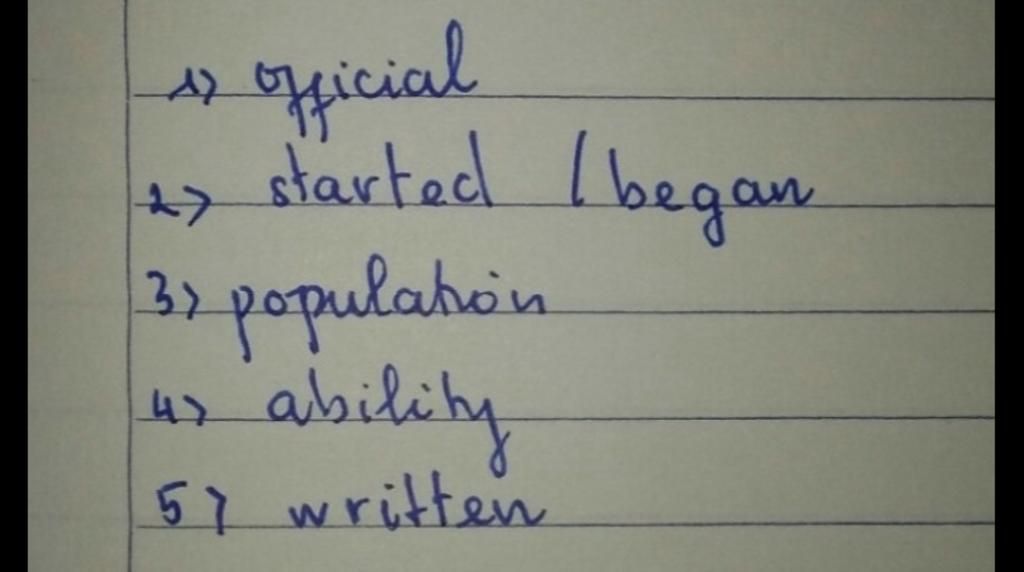 1> official
2> started / began
3> population
4> ability
5> written